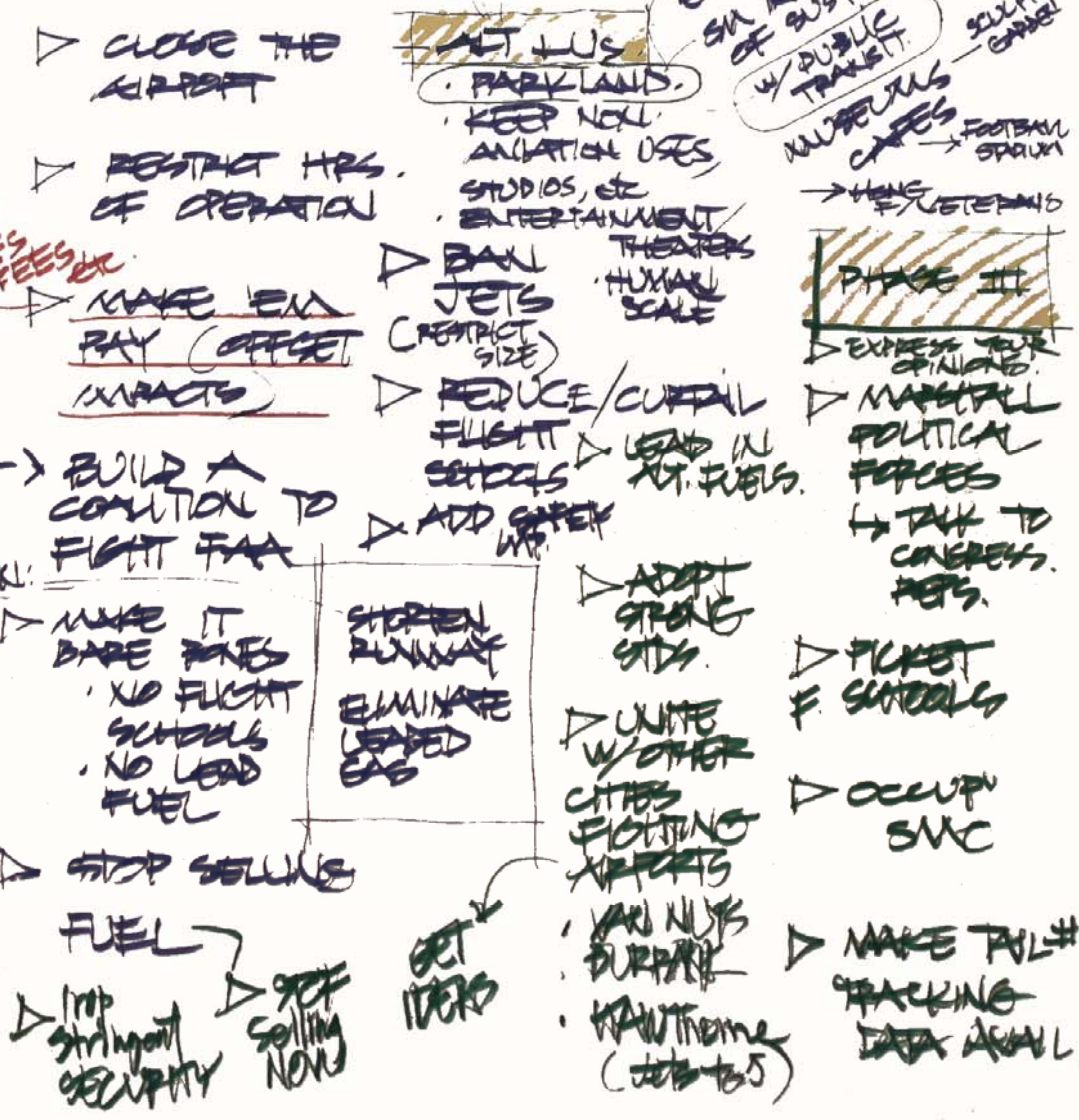 ▷ CLOSE THE
AIRPORT
▷ RESTRICT HRS.
OF OPERATION
FEES etc
▷ MAKE 'EM
PAY (OFFSET
IMPACTS)
→ BUILD A
COALITION TO
FIGHT FAA
▷ MAKE IT
BARE BONES
· NO FLIGHT
SCHOOLS
· NO LEAD
FUEL
▷ STOP SELLING
FUEL
▷ Imp
Stringent
SECURITY
▷ STOP
Selling
NOW
ALT LUs
· PARKLAND.
· KEEP NON
AVIATION USES,
STUDIOS, etc
· ENTERTAINMENT/
THEATERS
· HUMAN
SCALE
▷ BAN
JETS
(RESTRICT
SIZE)
▷ REDUCE/CURTAIL
FLIGHT
SCHOOLS
▷ ADD SAFETY
IMP.
SHORTEN
RUNWAY
ELIMINATE
LEADED
GAS
GET
IDEAS
▷ LEAD IN
ALT. FUELS.
▷ ADOPT
STRONG
STDS.
▷ UNITE
W/OTHER
CITIES
FIGHTING
AIRPORTS
· VAN NUYS
· BURBANK
· HAWThorne
(Jets to 5)
SM
OF
W/ PUBLIC
TRANSIT.
GARDEN
MUSEUMS
CAFES
→ FOOTBALL
STADIUM
→ HSNG
F/VETERANS
PHASE III
▷ EXPRESS YOUR
OPINIONS.
▷ MARSHALL
POLITICAL
FORCES
↳ TALK TO
CONGRESS.
REPS.
▷ PICKET
F. SCHOOLS
▷ OCCUPY
SMC
▷ MAKE TAIL #
TRACKING
DATA AVAIL